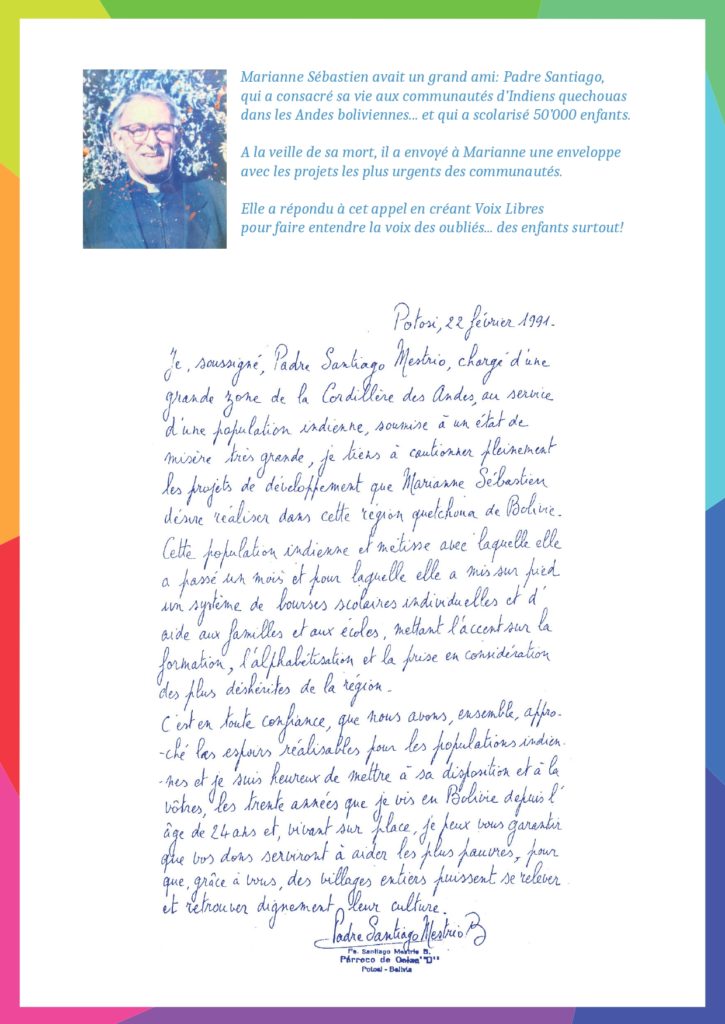 Marianne Sébastien avait un grand ami: Padre Santiago,
qui a consacré sa vie aux communautés d'Indiens quechouas
dans les Andes boliviennes... et qui a scolarisé 50'000 enfants.
A la veille de sa mort, il a envoyé à Marianne une enveloppe
avec les projets les plus urgents des communautés.
Elle a répondu à cet appel en créant Voix Libres
pour faire entendre la voix des oubliés... des enfants surtout!
Potosi, 22 février 1991.
Je, soussigné, Padre Santiago Mestrio, chargé d'une
grande zone de la Cordillère des Andes, au service
d'une population indienne, soumise à un état de
misère très grande, je tiens à cautionner pleinement
les projets de développement que Marianne Sébastien
désire réaliser dans cette région quetchoua de Bolivie.
Cette population indienne et métisse avec laquelle elle
a passé un mois et pour laquelle elle a mis sur pied
un système de bourses scolaires individuelles et d'
aide aux familles et aux écoles, mettant l'accent sur la
formation, l'alphabétisation et la prise en considération
des plus déshérités de la région.
C'est en toute confiance, que nous avons, ensemble, appro-
-ché les espoirs réalisables pour les populations indien-
-nes et je suis heureux de mettre à sa disposition et à la
vôtres, les trente années que je vis en Bolivie depuis l'
âge de 24 ans et, vivant sur place, je peux vous garantir
que vos dons serviront à aider les plus pauvres, pour
que, grâce à vous, des villages entiers puissent se relever
et retrouver dignement leur culture.
Padre Santiago Mestrio B
Po. Santiago Mestrio B.
Párroco de "D"
Potosi - Bolivia